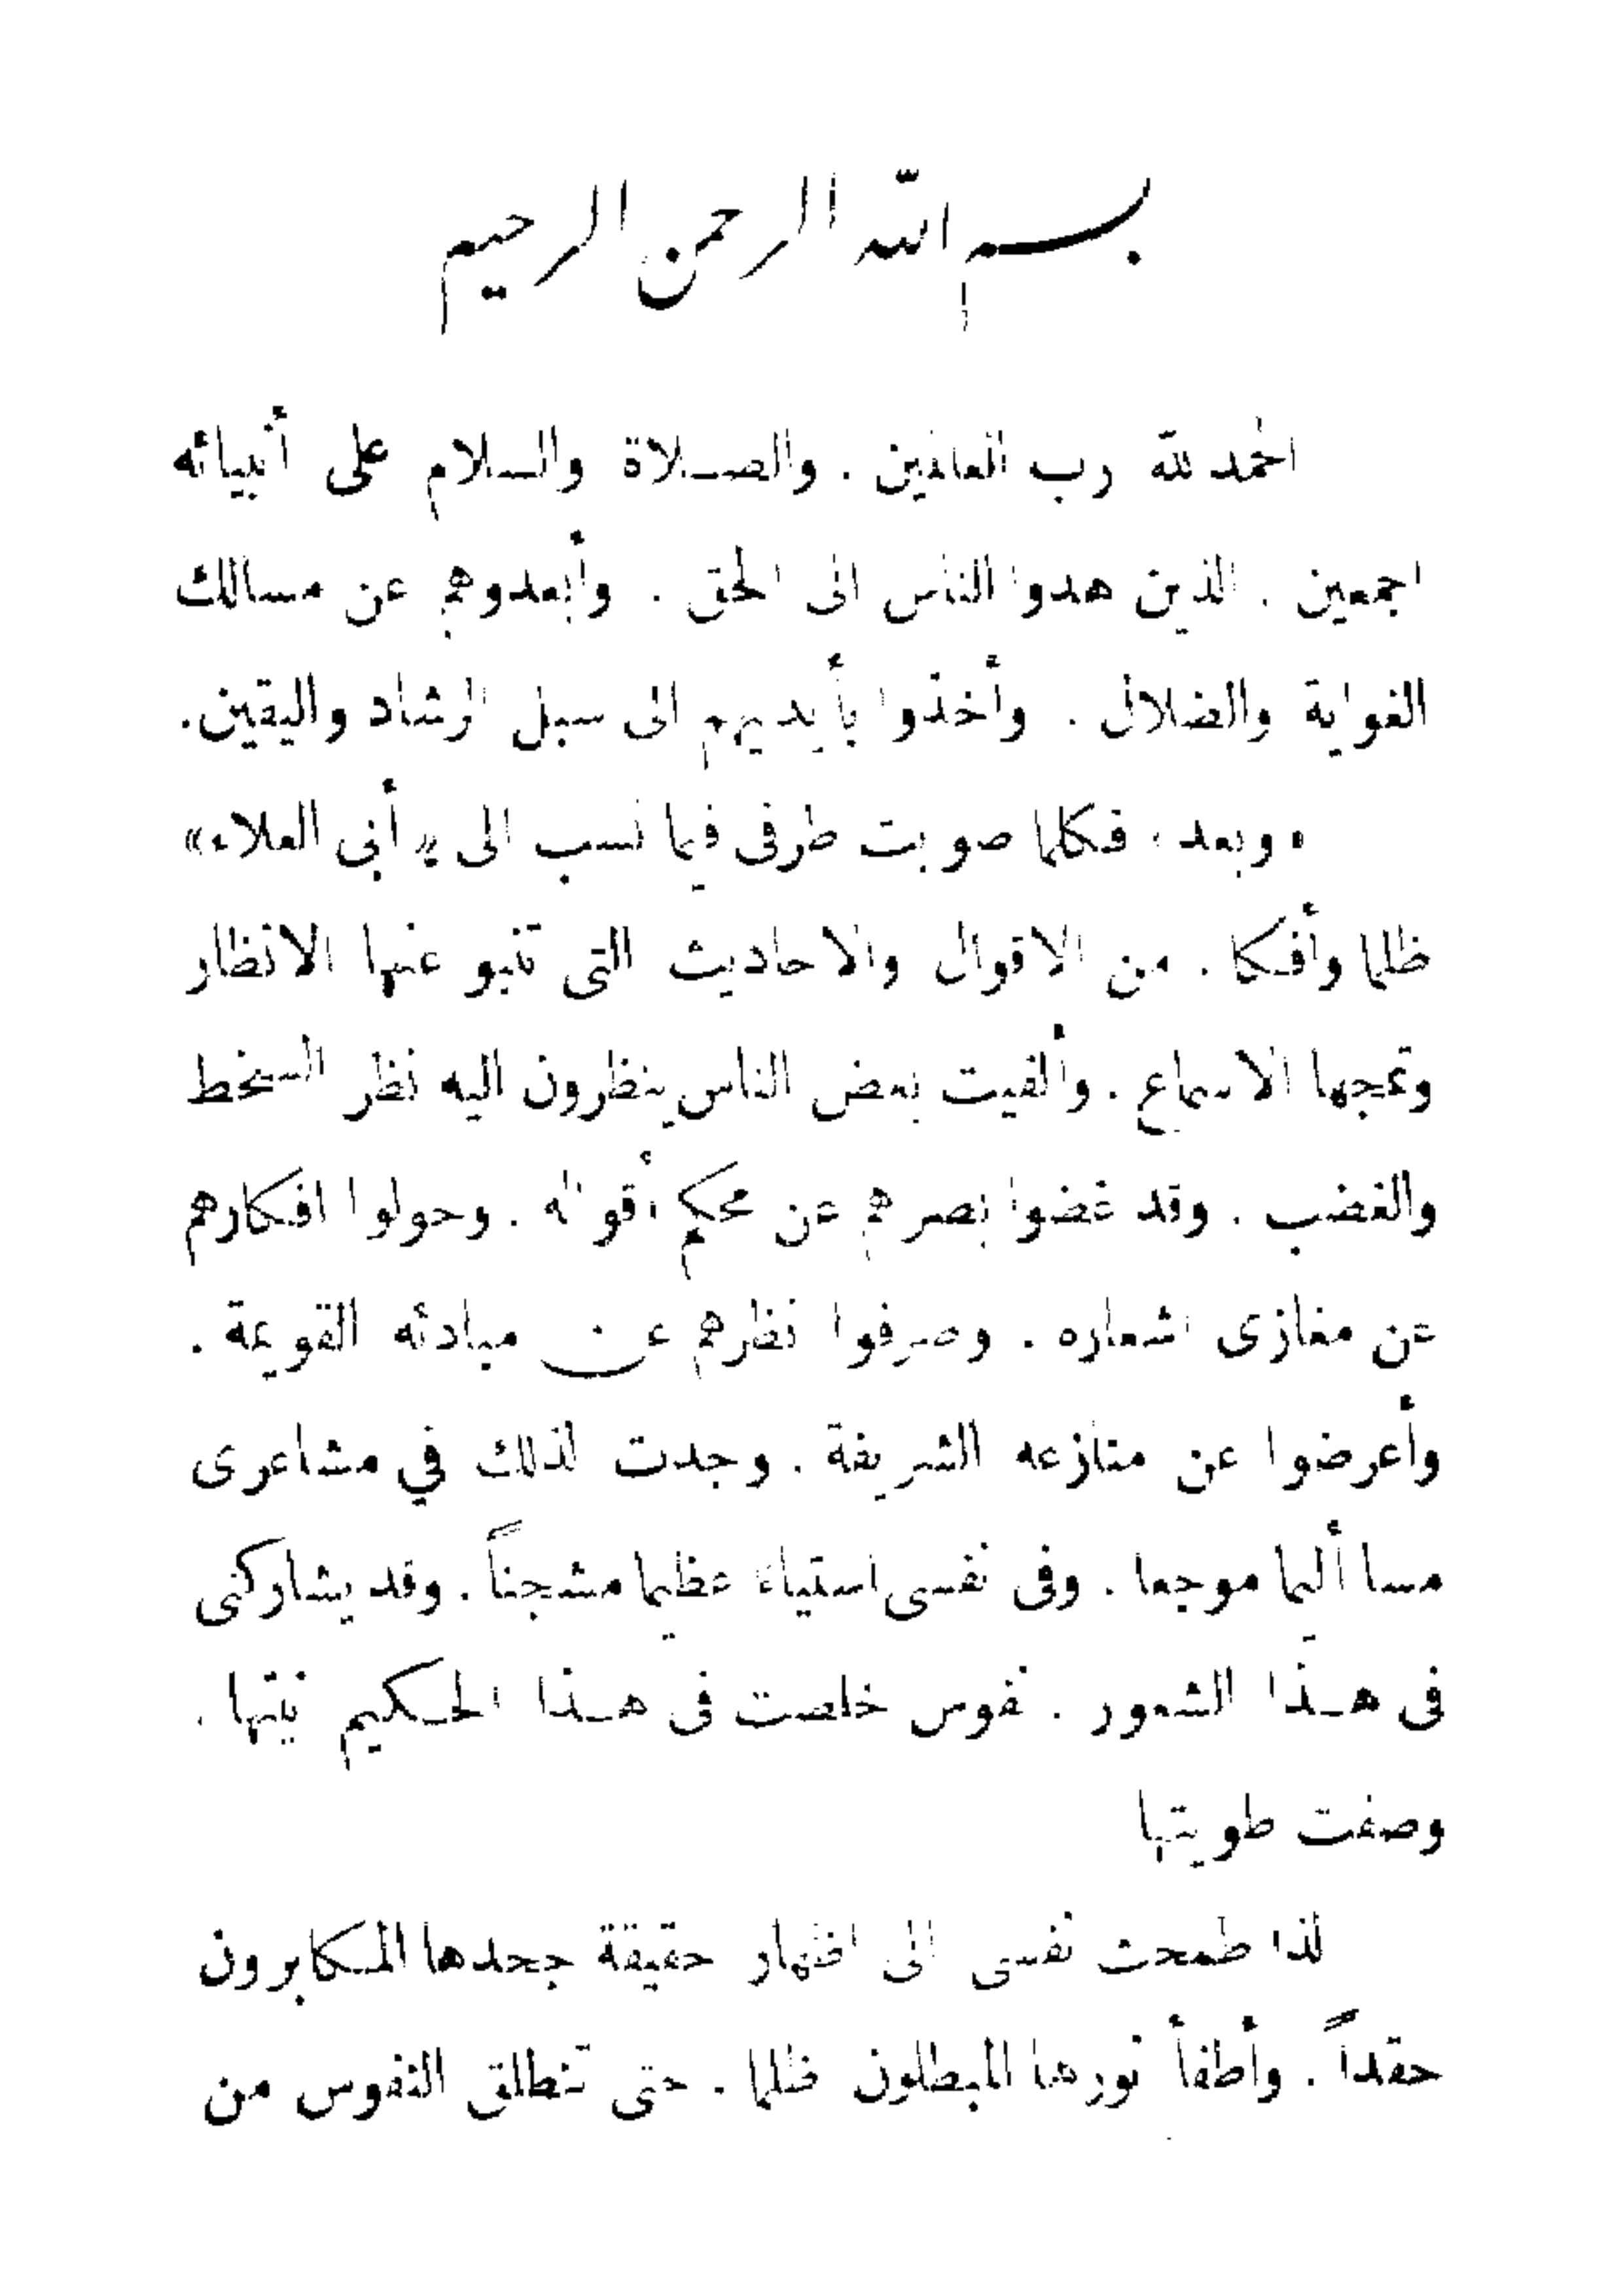 بسم الله الرحمن الرحيم
الحمد لله رب العالمين . والصلاة والسلام على أنبيائه
اجمعين . الذين هدوا الناس الى الحق . وأبعدوهم عن مسالك
الغواية والضلال . وأخذوا بأيديهم الى سبل الرشاد واليقين.
«وبعد» فكلما صوبت طرفى فيما نسب الى «أبى العلاء»
ظلما وأفكا . من الاقوال والاحاديث التى تنبو عنها الانظار
وتمجها الاسماع . وألفيت بعض الناس ينظرون اليه نظر السخط
والغضب . وقد غضوا بصرهم عن محكم أقواله . وحولوا افكارهم
عن مغازى اشعاره . وصرفوا نظرهم عن مبادئه القويمة .
وأعرضوا عن منازعه الشريفة . وجدت لذلك في مشاعرى
مسا أليما موجعا . وفى نفسى استياء عظيما مشجناً . وقد يشاركنى
فى هذا الشعور . نفوس خلصت فى هذا الحكيم نيتها .
وصفت طويتها
لذا طمحت نفسى الى اظهار حقيقة جحدها المكابرون
حقداً . وأطفأ نورها المبطلون ظلما . حتى تنطلق النفوس من